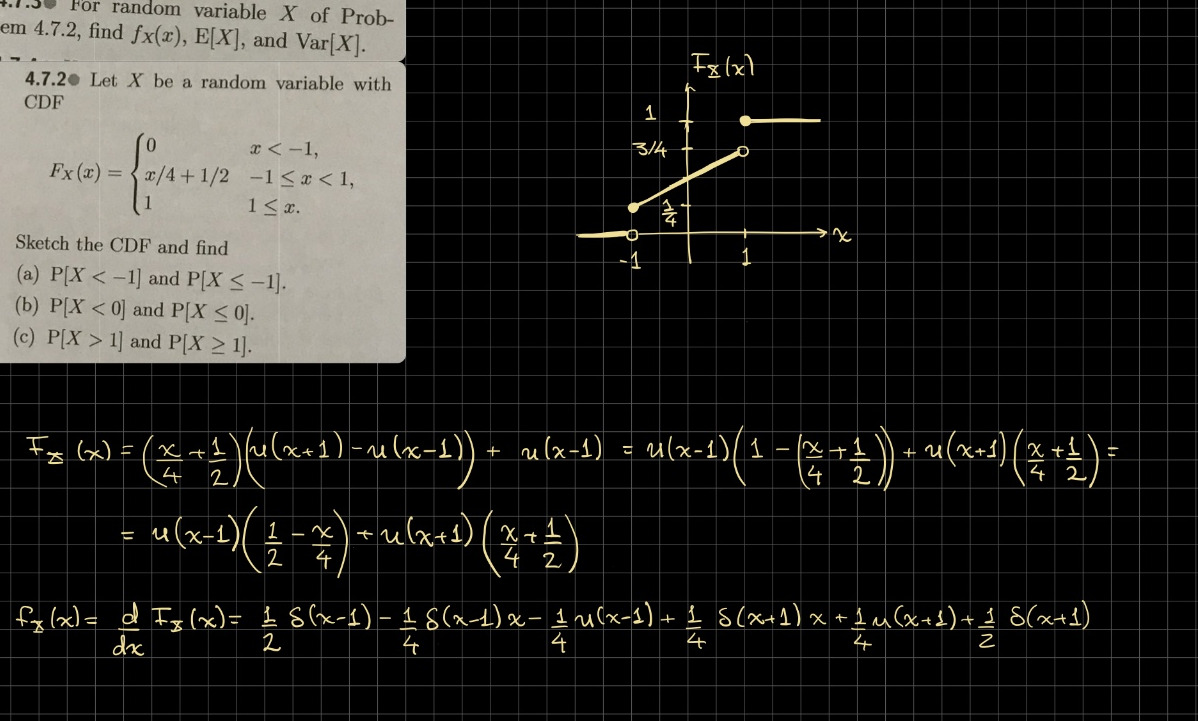 4.7.3● For random variable X of Prob-
em 4.7.2, find f_X(x), E[X], and Var[X].
4.7.2● Let X be a random variable with
CDF
F_X(x) = { 0 x < −1,
x/4 + 1/2 −1 ≤ x < 1,
1 1 ≤ x.
Sketch the CDF and find
(a) P[X < −1] and P[X ≤ −1].
(b) P[X < 0] and P[X ≤ 0].
(c) P[X > 1] and P[X ≥ 1].
F_X(x)
1
3/4
1/4
x
-1 1
F_X(x) = (x/4 + 1/2)(u(x+1) - u(x-1)) + u(x-1) = u(x-1)(1 - (x/4 + 1/2)) + u(x+1)(x/4 + 1/2) =
= u(x-1)(1/2 - x/4) + u(x+1)(x/4 + 1/2)
f_X(x) = d/dx F_X(x) = 1/2 δ(x-1) - 1/4 δ(x-1) x - 1/4 u(x-1) + 1/4 δ(x+1) x + 1/4 u(x+1) + 1/2 δ(x+1)